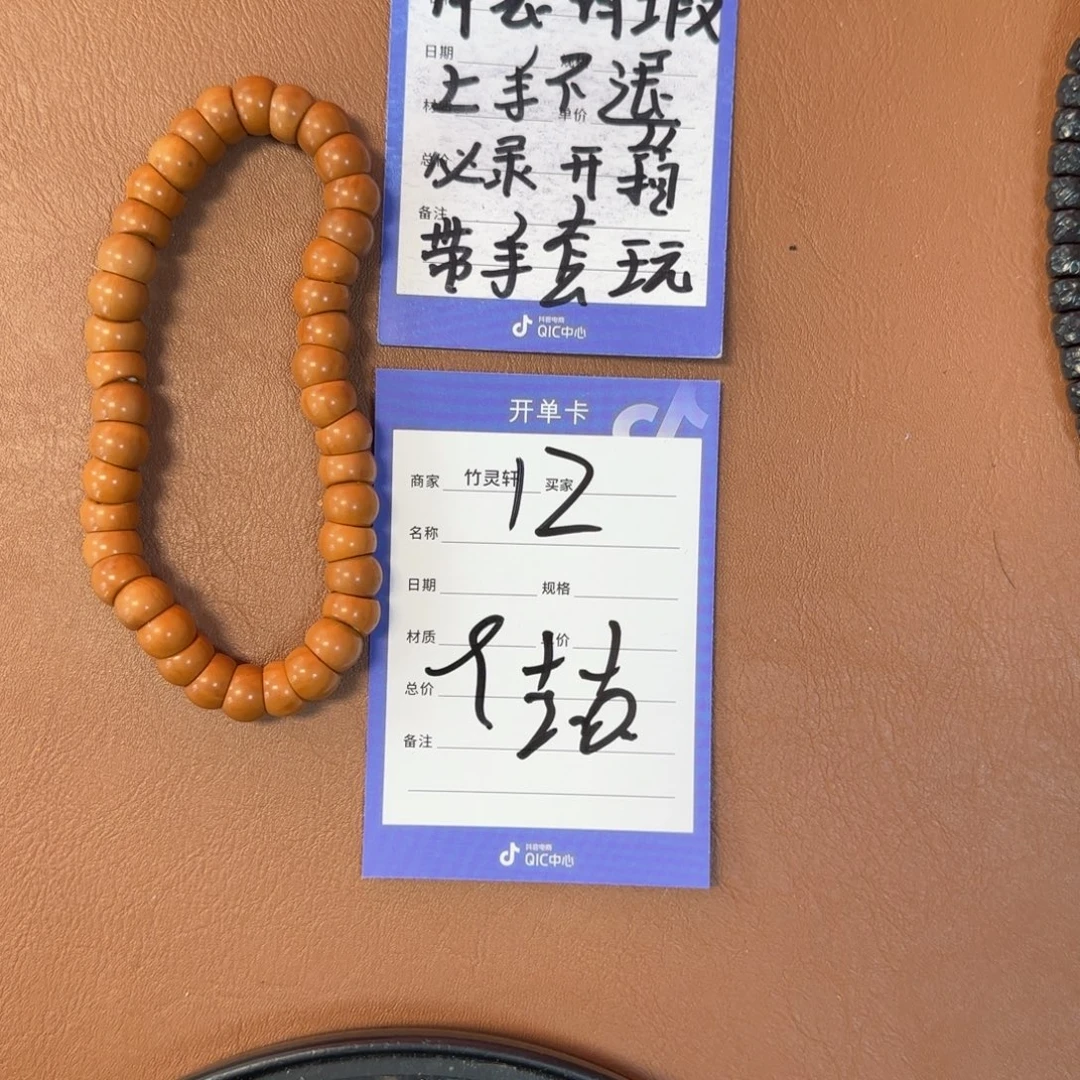 日期 规格
上手不退
材质 单价
总价
必录开箱
备注
带手套玩
抖音电商
QIC中心
开单卡
商家 竹灵轩 买家
12
名称
日期 规格
材质 单价
总价
备注
抖音电商
QIC中心